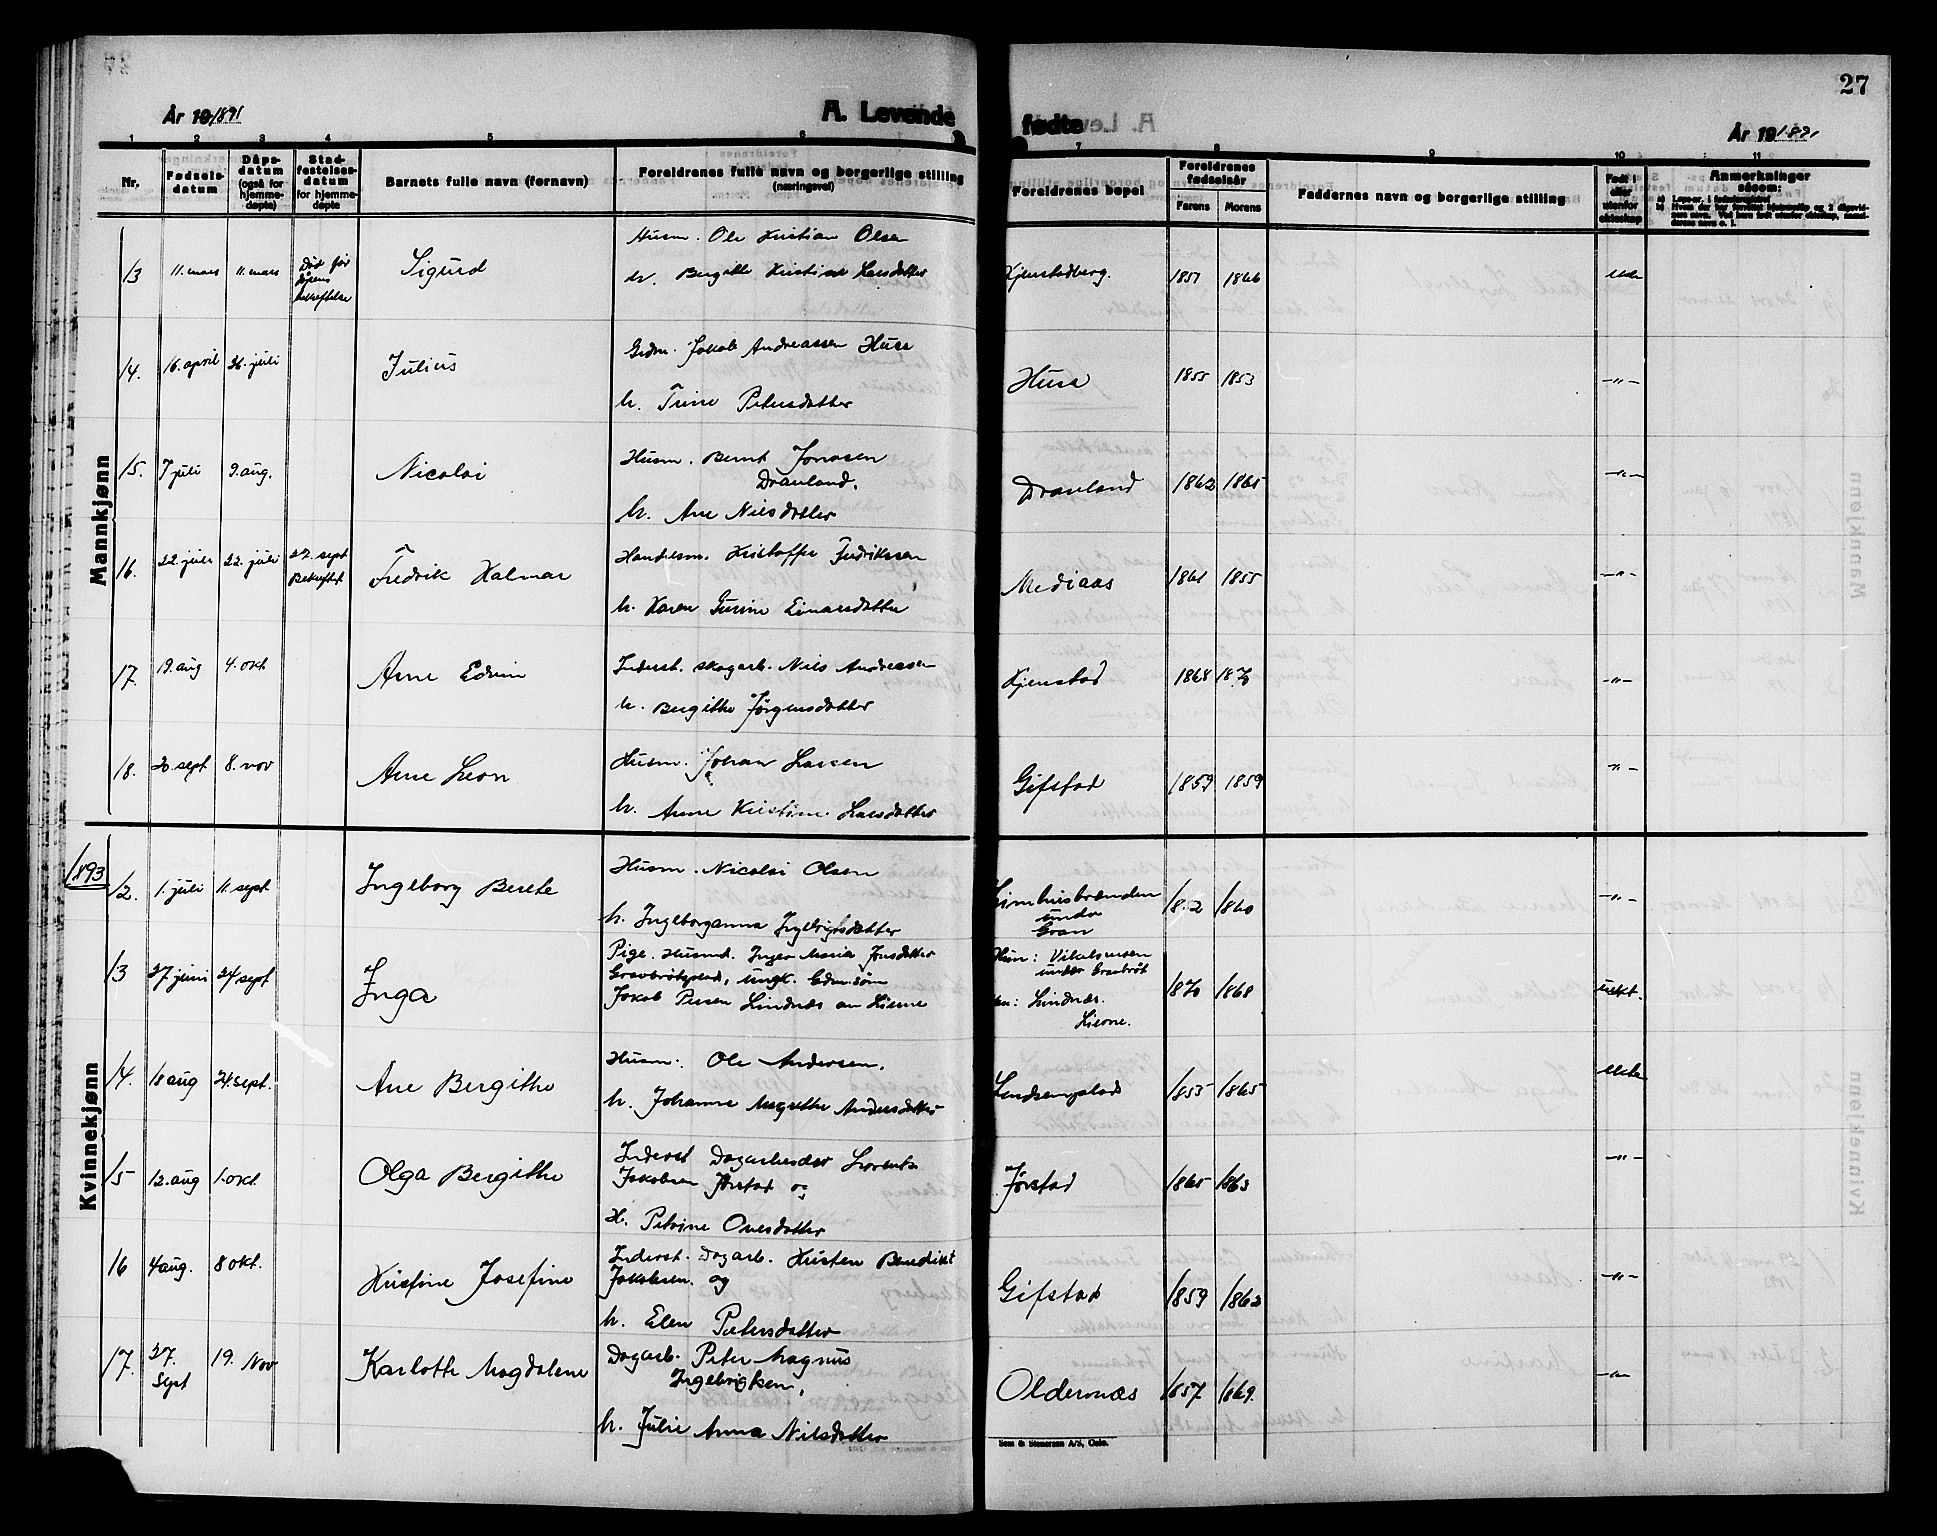 27
År 19 1891
A. Levende
fødte
År 19 1891
1 2 3 4 5 6 7 8 9 10 11
Nr.
Fødsels-
datum
Dåps-
datum
(også for
hjemme-
døpte)
Stad-
festelses-
datum
for hjemme-
døpte
Barnets fulle navn (fornavn)
Foreldrenes fulle navn og borgerlige stilling
(næringsvei)
Foreldrenes bopel
Foreldrenes
fødselsår
Farens Morens
Faddernes navn og borgerlige stilling
Født i
eller
utenfor
ekteskap
Anmerkninger
såsom:
Mannkjønn
13 11. mars 11. mars Død før Sigurd Husm. Ole Kristian Olsen
h. Bergitte Kristine Larsdatter Kjenstadberg. 1857 1866 ekte
14. 16. april 26. juli Julius Gdm. Jakob Andreassen Husa
h. Trine Petersdatter Husa 1855 1853 -"-
15. 7 juli 9. aug. Nicolai Husm. Bernt Jonasen
Dravland.
h. Ane Nilsdatter Dravland 1862 1865 -"-
16. 22. juli 22. juli 27. sept Bekreftet Fredrik Halmar Handelsm. Kristoffer Fredriksen
h. Karen Turine Einarsdatter Mediaas 1861 1855 -"-
17. 19. aug 4. okt Arne Edvin Inderst. skogarb. Nils Andreasen
h. Bergitte Jørgensdatter Kjenstad 1868 1870 -"-
18. 20. sept 8. nov Arne Leon Husm. Johan Larsen
h. Anne Kristine Larsdatter Gifstad 1859 1859 -"-
1893
Kvinnekjønn
12. 1. juli 11. sept Ingeborg Berete Husm. Nicolai Olsen
h. Ingeborganna Ingebrigtsdatter
under
Gran 1852 1860 -"-
13 27 juni 24 sept Inga Pige. Husmd. Inger Maria Jonsdatter
ungk. Gdm.søn
Jakob Persen Lindnæs av Lierne
Hun: Vikelsmoen
under Grønbrøt
Lindnæs.
Lierne. 1870 1868 uekt.
14. 18 aug 24. sept. Ane Bergithe Husm: Ole Andersen.
h. Johanna Magrethe Andersdatter Lindsemplad 1855 1865 ekte
15 12. aug 1. okt. Olga Bergithe Inderst Dagarbeider Lorents
Jakobsen Jørstad og
H. Petrine Ovesdatter Jørstad 1865 1863 -"-
16 4 aug. 8 okt. Kristine Josefine Inderst. Dagarb. Kristen Benedikt
Jakobsen. og
h. Elen Petersdatter Gifstad 1859 1862 -"-
17. 27.
Sept 19. Nov Karlotte Magdalene Dagarb. Peter Magnus
Ingebrigtsen,
h. Julie Anna Nilsdatter Oldernæs 1857 1869. -"-
Sem & Stenersen A/S, Oslo.